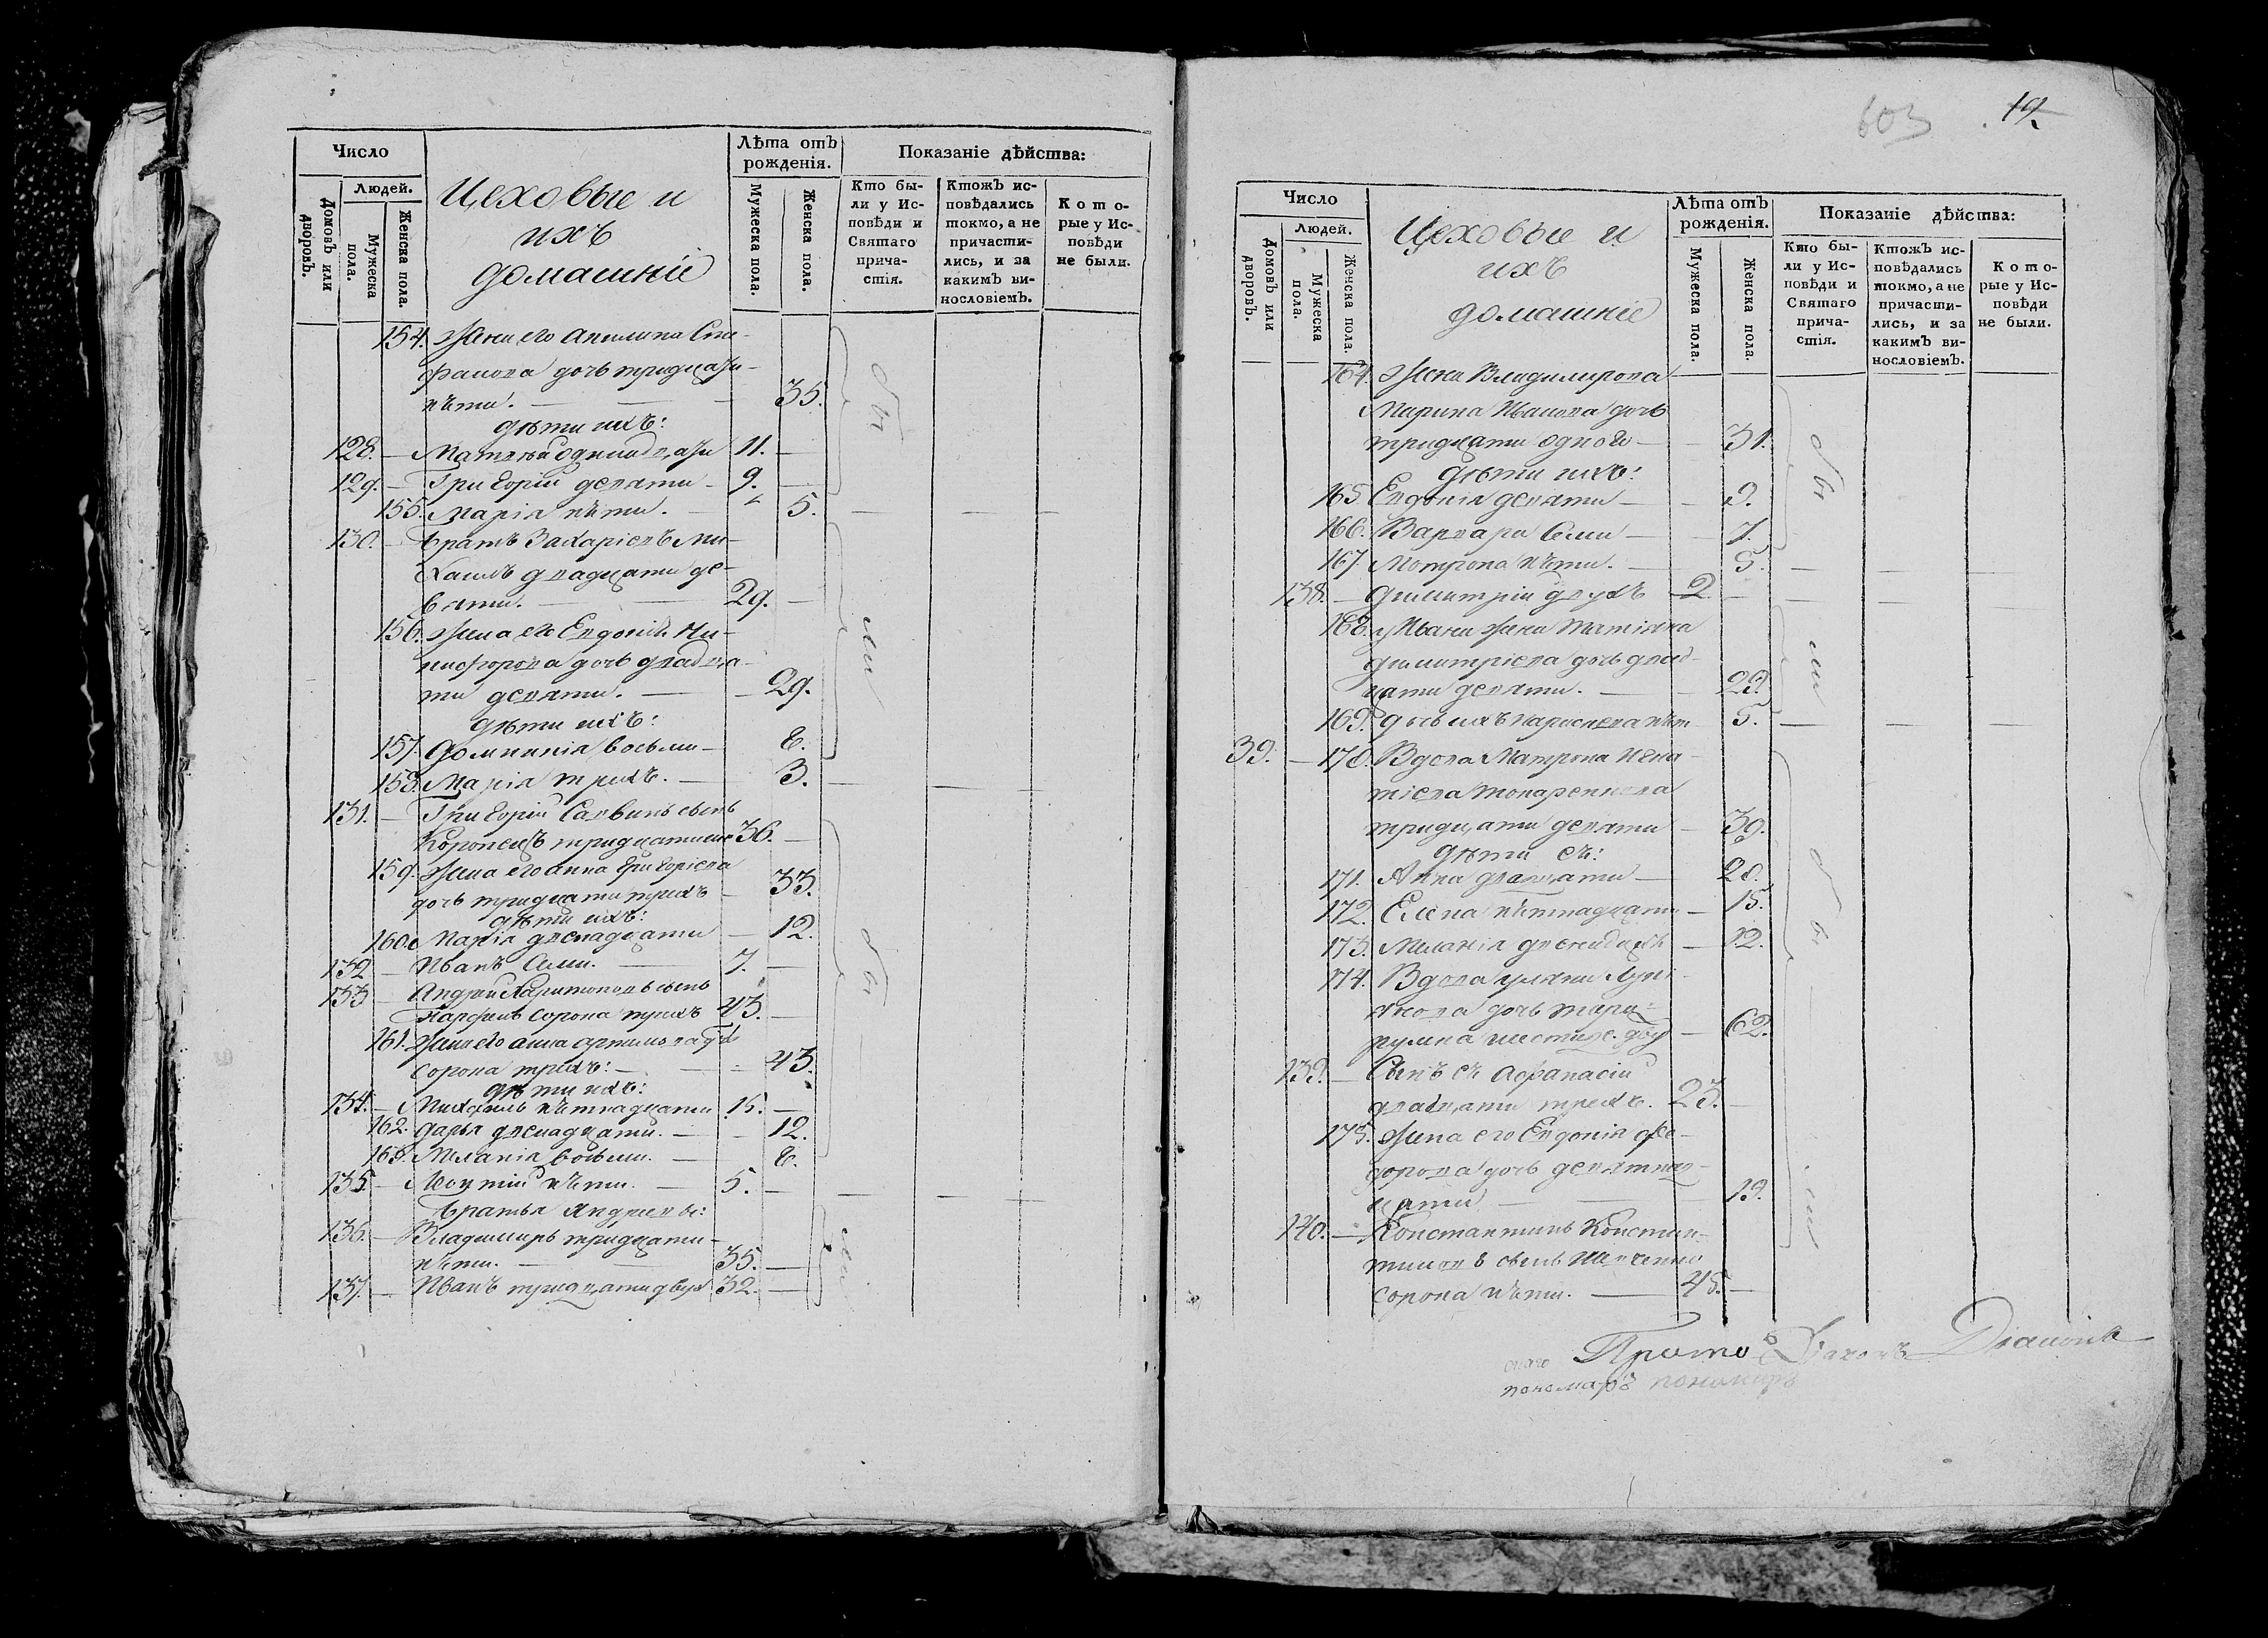 Число
Людей.
Домовъ или дворовъ.
Мужеска пола.
Женска пола.
Цеховые и
ихъ
домашніе
Лѣта отъ
рожденія.
Мужеска пола.
Женска пола.
Показаніе дѣйства:
Кто бы-
ли у Ис-
повѣди и
Святаго
прича-
стія.
Ктожъ ис-
повѣдались
токмо, а не
причасти-
лись, и за
какимъ ви-
нословіемъ.
Кото-
рые у Ис-
повѣди
не были.
154. Жена его Акилина Сте-
фанова дочь тридцати
пяти. 35.
дѣти ихъ:
128. Матвѣй одинадцати 11.
129. Григорій девяти 9.
155. Марія пяти. 5.
130. Братъ Захаріевъ Ми-
хаилъ двадцати де-
вяти. 29.
156. Жена его Евдокія Ни-
кифорова дочь двадца-
ти девяти. 29.
дѣти ихъ:
157. Домникія восьми 8.
158. Марія трехъ. 3.
131. Григорій Саввинъ сынъ
тридцати 36.
159. Жена его Анна Григоріева
дочь тридцати трехъ 33.
дѣти ихъ:
160. Марія двенадцати 12.
132. Иванъ Семи. 7.
133. Андрей Харитоновъ сынъ
сорока трехъ 43.
161. Жена его Анна
сорока трехъ: 43.
дѣти ихъ:
134. Михаилъ пятнадцати 15.
162. Дарья двенадцати. 12.
163. Меланія восьми. 8.
135. Леонтій пяти. 5.
Братья Андреевы:
136. Владимиръ тридцати
пяти. 35.
137. Иванъ тридцати двухъ 32.
бы
ли
бы
ли
603
19
Число
Людей.
Домовъ или дворовъ.
Мужеска пола.
Женска пола.
Цеховые и
ихъ
домашніе
Лѣта отъ
рожденія.
Мужеска пола.
Женска пола.
Показаніе дѣйства:
Кто бы-
ли у Ис-
повѣди и
Святаго
прича-
стія.
Ктожъ ис-
повѣдались
токмо, а не
причасти-
лись, и за
какимъ ви-
нословіемъ.
Кото-
рые у Ис-
повѣди
не были.
164. Жена Владимирова
Марина Иванова дочь
тридцати одного 31.
дѣти ихъ:
165. Евдокія девяти 9.
166. Варвара Семи 7.
167. Мотрона пяти. 5.
138. Димитрій двухъ 2.
168. Ивана жена Татіяна
Димитріева дочь двад-
цати девяти. 29.
169. дочь ихъ Параскева пяти 5.
39. 170. Вдова Матрона Игна-
тіева
тридцати девяти 39.
дѣти ея:
171. Анна двадцати 20.
172. Елена пятнадцати 15.
173. Меланія двенадцати 12.
174. Вдова Уляна
дочь
62.
139. Сынъ ея Афанасій
двадцати трехъ. 23.
175. Жена его Евдокія Фе-
дорова дочь девятнад-
цати 19.
140. Константинъ Констан-
тиновъ сынъ Шевченко
сорока пяти. 45.
бы
ли
бы
ли
пономаръ